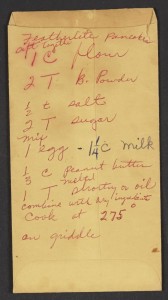 Featherlite Pancakes
sift together
1 C flour
2 T B. Powder
1/2 t salt
2 T sugar
mix
1 egg - 1 1/4 C milk
1/3 C Peanut butter
melted
1 T Shortning or oil
combine with dry ingredient
Cook at 275°
on griddle